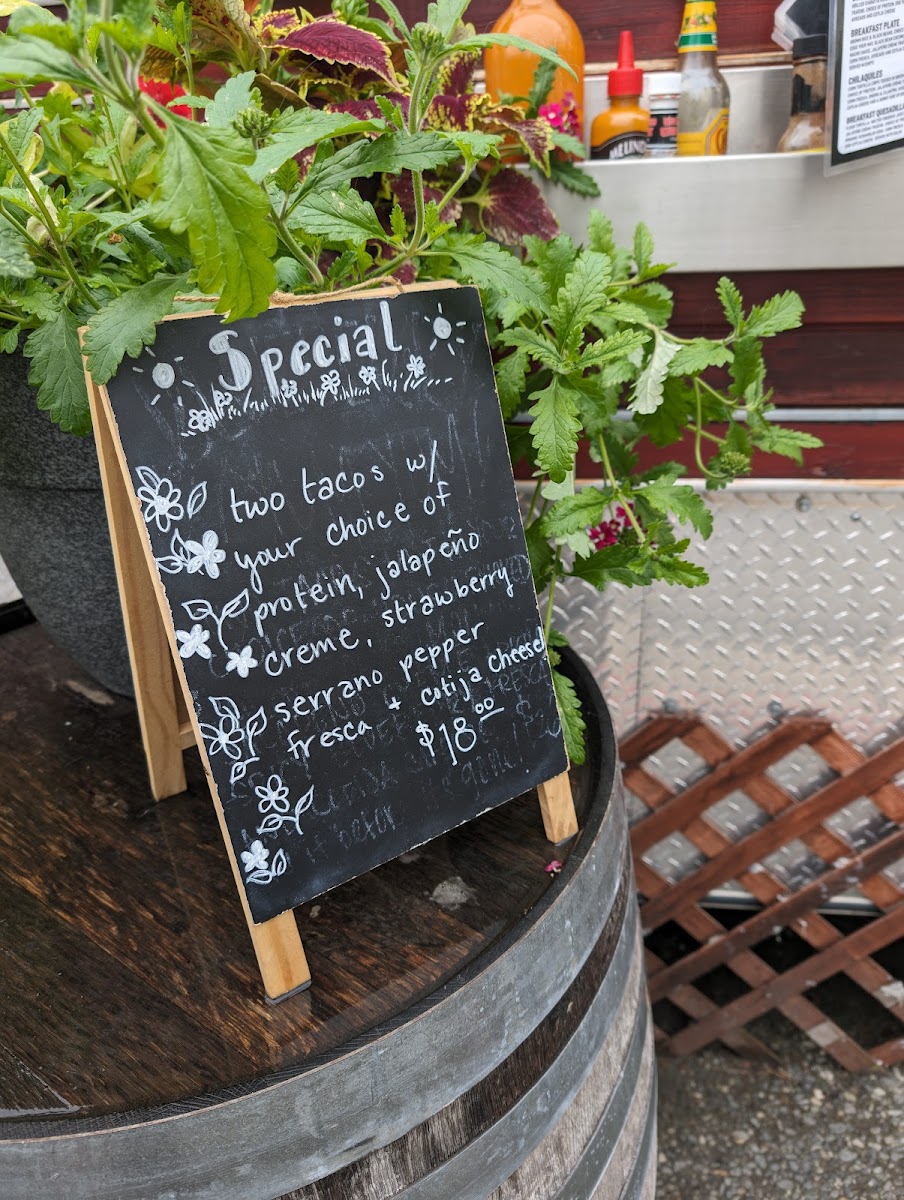 BREAKFAST PLATE
CHILAQUILES
BREAKFAST QUESADILLA
Special
two tacos w/
your choice of
protein, jalapeño
creme, strawberry
serrano pepper
fresca + cotija cheese!
$18.00